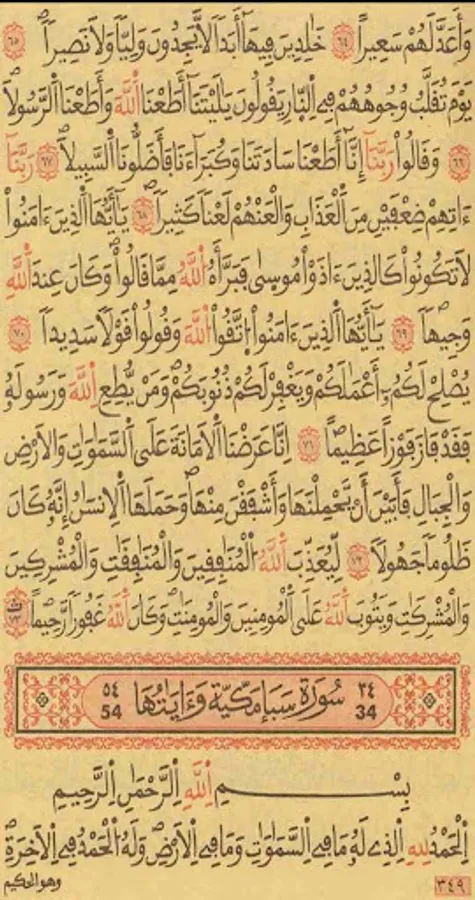 وَأَعَدَّ لَهُمْ سَعِيراً ٦٤ خَٰلِدِينَ فِيهَا أَبَداً لَّا يَجِدُونَ وَلِيّاً وَلَا نَصِيراً ٦٥
يَوْمَ تُقَلَّبُ وُجُوهُهُمْ فِي اِ۬لنّ۪ارِ يَقُولُونَ يَٰلَيْتَنَآ أَطَعْنَا اَ۬للَّهَ وَأَطَعْنَا اَ۬لرَّسُولَا
٦٦ وَقَالُواْ رَبَّنَآ إِنَّآ أَطَعْنَا سَادَتَنَا وَكُبَرَآءَنَا فَأَضَلُّونَا اَ۬لسَّبِيلَا ٦٧ رَبَّنَآ
ءَاتِهِمْ ضِعْفَيْنِ مِنَ اَ۬لْعَذَابِ وَالْعَنْهُمْ لَعْناً كَثِيراً ٦٨ يَٰٓأَيُّهَا اَ۬لذِينَ ءَامَنُواْ
لَا تَكُونُواْ كَالذِينَ ءَاذَوْاْ مُوس۪يٰ فَبَرَّأَهُ اُ۬للَّهُ مِمَّا قَالُواْ وَكَانَ عِندَ اَ۬للَّهِ
وَجِيهاً ٦٩ يَٰٓأَيُّهَا اَ۬لذِينَ ءَامَنُواْ اُ۪تَّقُواْ اُ۬للَّهَ وَقُولُواْ قَوْلاً سَدِيداً ٧٠
يُصْلِحْ لَكُمُۥٓ أَعْمَٰلَكُمْ وَيَغْفِرْ لَكُمْ ذُنُوبَكُمْ وَمَنْ يُّطِعِ اِ۬للَّهَ وَرَسُولَهُۥ
فَقَدْ فَازَ فَوْزاً عَظِيماً ٧١ إِنَّا عَرَضْنَا اَ۬لَامَانَةَ عَلَي اَ۬لسَّمَٰوَٰتِ وَالَارْضِ
وَالْجِبَالِ فَأَبَيْنَ أَنْ يَّحْمِلْنَهَا وَأَشْفَقْنَ مِنْهَا وَحَمَلَهَا اَ۬لِانسَٰنُ إِنَّهُۥ كَانَ
ظَلُوماً جَهُولاً ٧٢ لِّيُعَذِّبَ اَ۬للَّهُ اُ۬لْمُنَٰفِقِينَ وَالْمُنَٰفِقَٰتِ وَالْمُشْرِكِينَ
وَالْمُشْرِكَٰتِ وَيَتُوبَ اَ۬للَّهُ عَلَي اَ۬لْمُومِنِينَ وَالْمُومِنَٰتِ وَكَانَ اَ۬للَّهُ غَفُوراً رَّحِيماً ٧٣
٣٤ 34 سُورَة سَبَإٍ مَكِيَّة وَءَايَاتُهَا ٥٤ 54
بِسْمِ اِ۬للَّهِ اِ۬لرَّحْمَٰنِ اِ۬لرَّحِيمِ
اِ۬لْحَمْدُ لِلهِ اِ۬لذِي لَهُۥ مَا فِي اِ۬لسَّمَٰوَٰتِ وَمَا فِي اِ۬لَارْضِ وَلَهُ اُ۬لْحَمْدُ فِي اِ۬لَاخِرَةِ
وهو الحكيم
٣٤٩